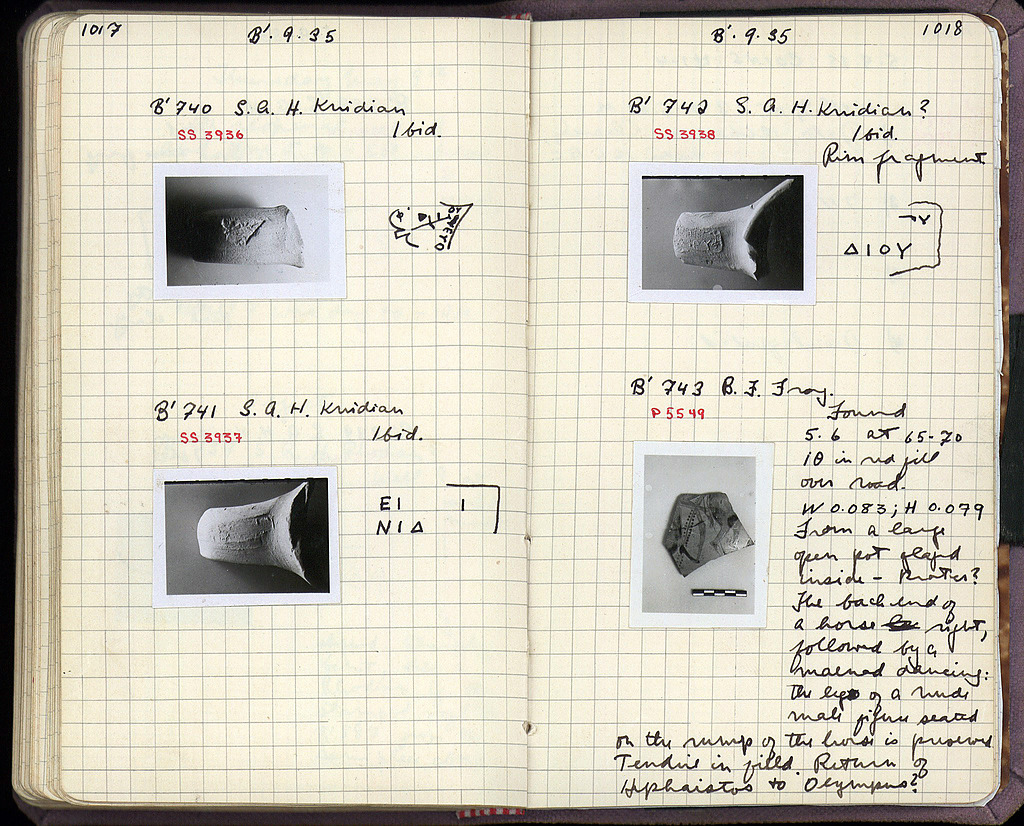 1017
B'. 9. 35
B' 740 S. A. H. Knidian
SS 3936
Ibid.
B' 741 S. A. H. Knidian
SS 3937
Ibid.
ΕΙ Ι
ΝΙΔ
B'. 9. 35
1018
B' 742 S. A. H. Knidian?
SS 3938
Ibid.
Rim fragment
ΔΙΟΥ
B' 743 B. F. Frag.
P 5549
Found
5. 6 at 65-70
ΙΘ in red fill
over road.
W 0.083; H 0.079
From a large
open pot glazed
inside - Krater?
The back end of
a horse right,
followed by a
maenad dancing:
the legs of a nude
male figure seated
on the rump of the horse is preserved
Tendril in field. Return of
Hephaistos to Olympus?